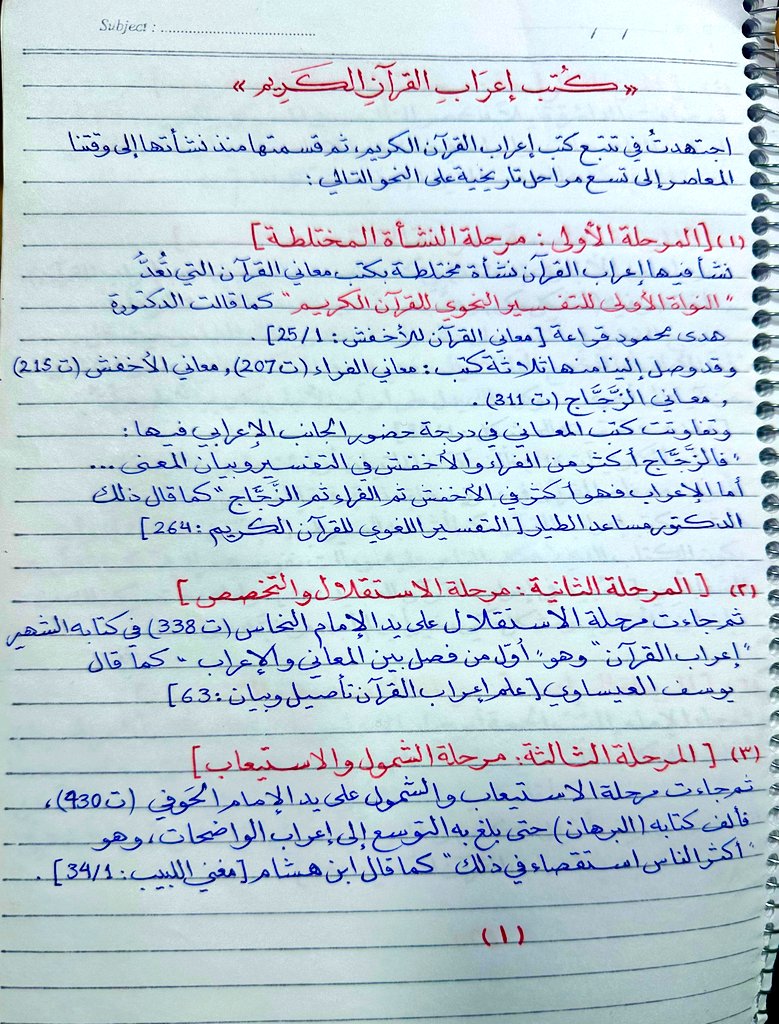 Subject : ......................................
/ /
« كُتب إعرَابِ القرآنِ الكَرِيم »
اجتهدتُ في تتبع كتب إعراب القرآن الكريم، ثم قسمتها منذ نشأتها إلى وقتنا
المعاصر إلى تسع مراحل تاريخية على النحو التالي :
(١) [المرحلة الأولى : مرحلة النشأة المختلطة]
نشأ فيها إعراب القرآن نشأة مختلطة بكتب معاني القرآن التي تُعَدُّ
"النواة الأولى للتفسير النحوي للقرآن الكريم" كما قالت الدكتورة
هدى محمود قراعة [معاني القرآن للأخفش : 25/1] .
وقد وصل إلينا منها ثلاثة كتب : معاني الفراء (ت 207)، ومعاني الأخفش (ت 215)
، ومعاني الزَّجَّاج (ت 311) .
وتفاوتت كتب المعاني في درجة حضور الجانب الإعرابي فيها :
"فالزَّجَّاج أكثر من الفراء والأخفش في التفسير وبيان المعنى ...
أما الإعراب فهو أكثر في الأخفش ثم الفراء ثم الزَّجَّاج" كما قال ذلك
الدكتور مساعد الطيار [التفسير اللغوي للقرآن الكريم : 264]
(٢) [المرحلة الثانية : مرحلة الاستقلال والتخصص]
ثم جاءت مرحلة الاستقلال على يد الإمام النحاس (ت 338) في كتابه الشهير
"إعراب القرآن" وهو "أوّل من فصل بين المعاني والإعراب" كما قال
يوسف العيساوي [علم إعراب القرآن تأصيل وبيان : 63]
(٣) [المرحلة الثالثة : مرحلة الشمول والاستيعاب]
ثم جاءت مرحلة الاستيعاب والشمول على يد الإمام الحَوفي (ت 430)،
فألف كتابه (البرهان) حتى بلغ به التوسع إلى إعراب الواضحات، وهو
"أكثر الناس استقصاء في ذلك" كما قال ابن هشام [مغني اللبيب : 34/1] .
(١)